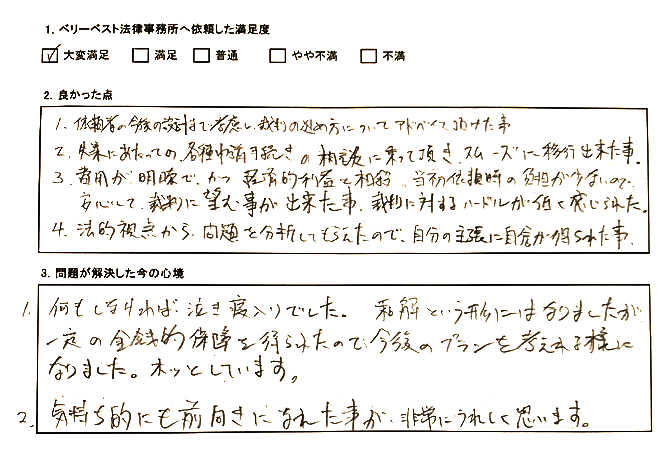 1. ベリーベスト法律事務所へ依頼した満足度
☑ 大変満足 □ 満足 □ 普通 □ やや不満 □ 不満
2. 良かった点
1. 依頼者の今後の設計まで考慮し、裁判の進め方についてアドバイス頂けた事
2. 失業にあたっての各種申請手続きの相談に乗って頂き、スムーズに移行出来た事。
3. 費用が明瞭で、かつ経済的利益と相殺、当初依頼時の負担が少ないので、
安心して、裁判に望む事が出来た事、裁判に対するハードルが低く感じられた。
4. 法的視点から、問題を分析してもらえたので、自分の主張に自信が得られた事、
3. 問題が解決した今の心境
1. 何もしなければ、泣き寝入りでした。 和解という形にはなりましたが、
一定の金銭的保障を得られたので今後のプランを考えれる様に
なりました。ホッとしています。
2. 気持ち的にも前向きになれた事が、非常にうれしく思います。